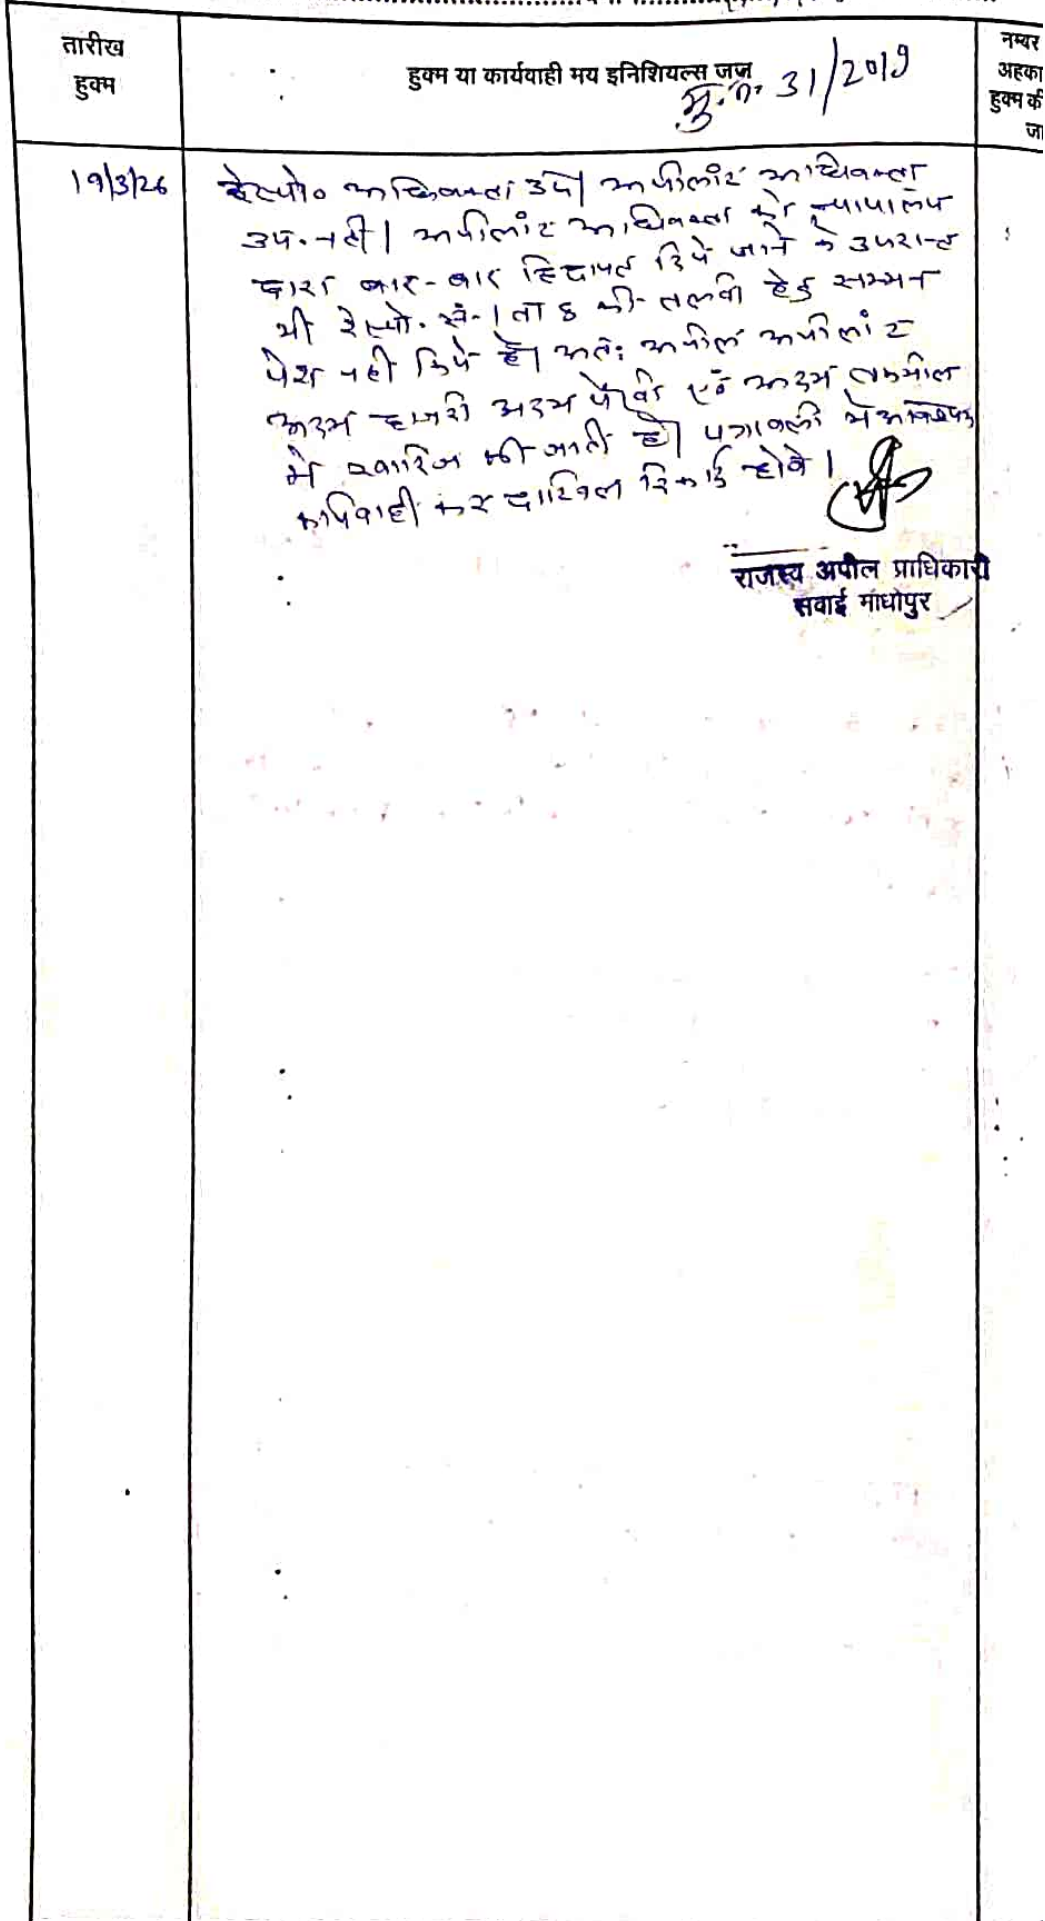 तारीख
हुक्म
हुक्म या कार्यवाही मय इनिशियल्स जज
मु.न. 31/2019
नम्बर
अहका
हुक्म की
जा
19/3/26
रेस्पो० अधिवक्ता उप। अपीलांट अधिवक्ता
उप. नही। अपीलांट अधिवक्ता को न्यायालय
द्वारा बार-बार हिदायत दिये जाने के उपरान्त
भी रेस्पो. सं. 1 ता 8 की तलबी हेतु सम्मन
पेश नही किये है। अतः अपील अपीलांट
अदम हाजरी अदम पैरवी एवं अदम तकमील
मे खारिज की जाती है। पत्रावली मे आवश्यक
कार्यवाही कर दाखिल रिकार्ड होवे।
राजस्व अपील प्राधिकारी
सवाई माधोपुर